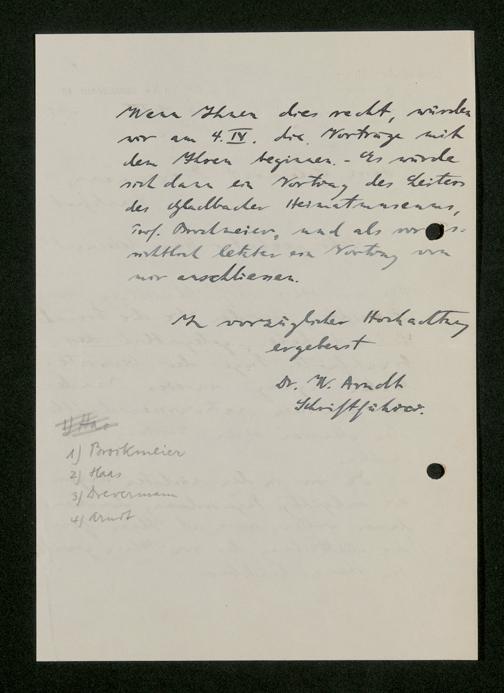 Wenn Ihnen dies recht, würden
wir am 4. IV. die Vorträge mit
dem Ihren beginnen. - Es würde
sich dann ein Vortrag des Leiters
des Gladbacher Heimatmuseums,
Prof. Brockmeier, und als voraus-
sichtlich letzter ein Vortrag von
mir anschliessen.
In vorzüglicher Hochachtung
ergebenst
Dr. W. Arndt
Schriftführer.
1) Haas
1) Brockmeier
2) Haas
3) Drevermann
4) Arndt